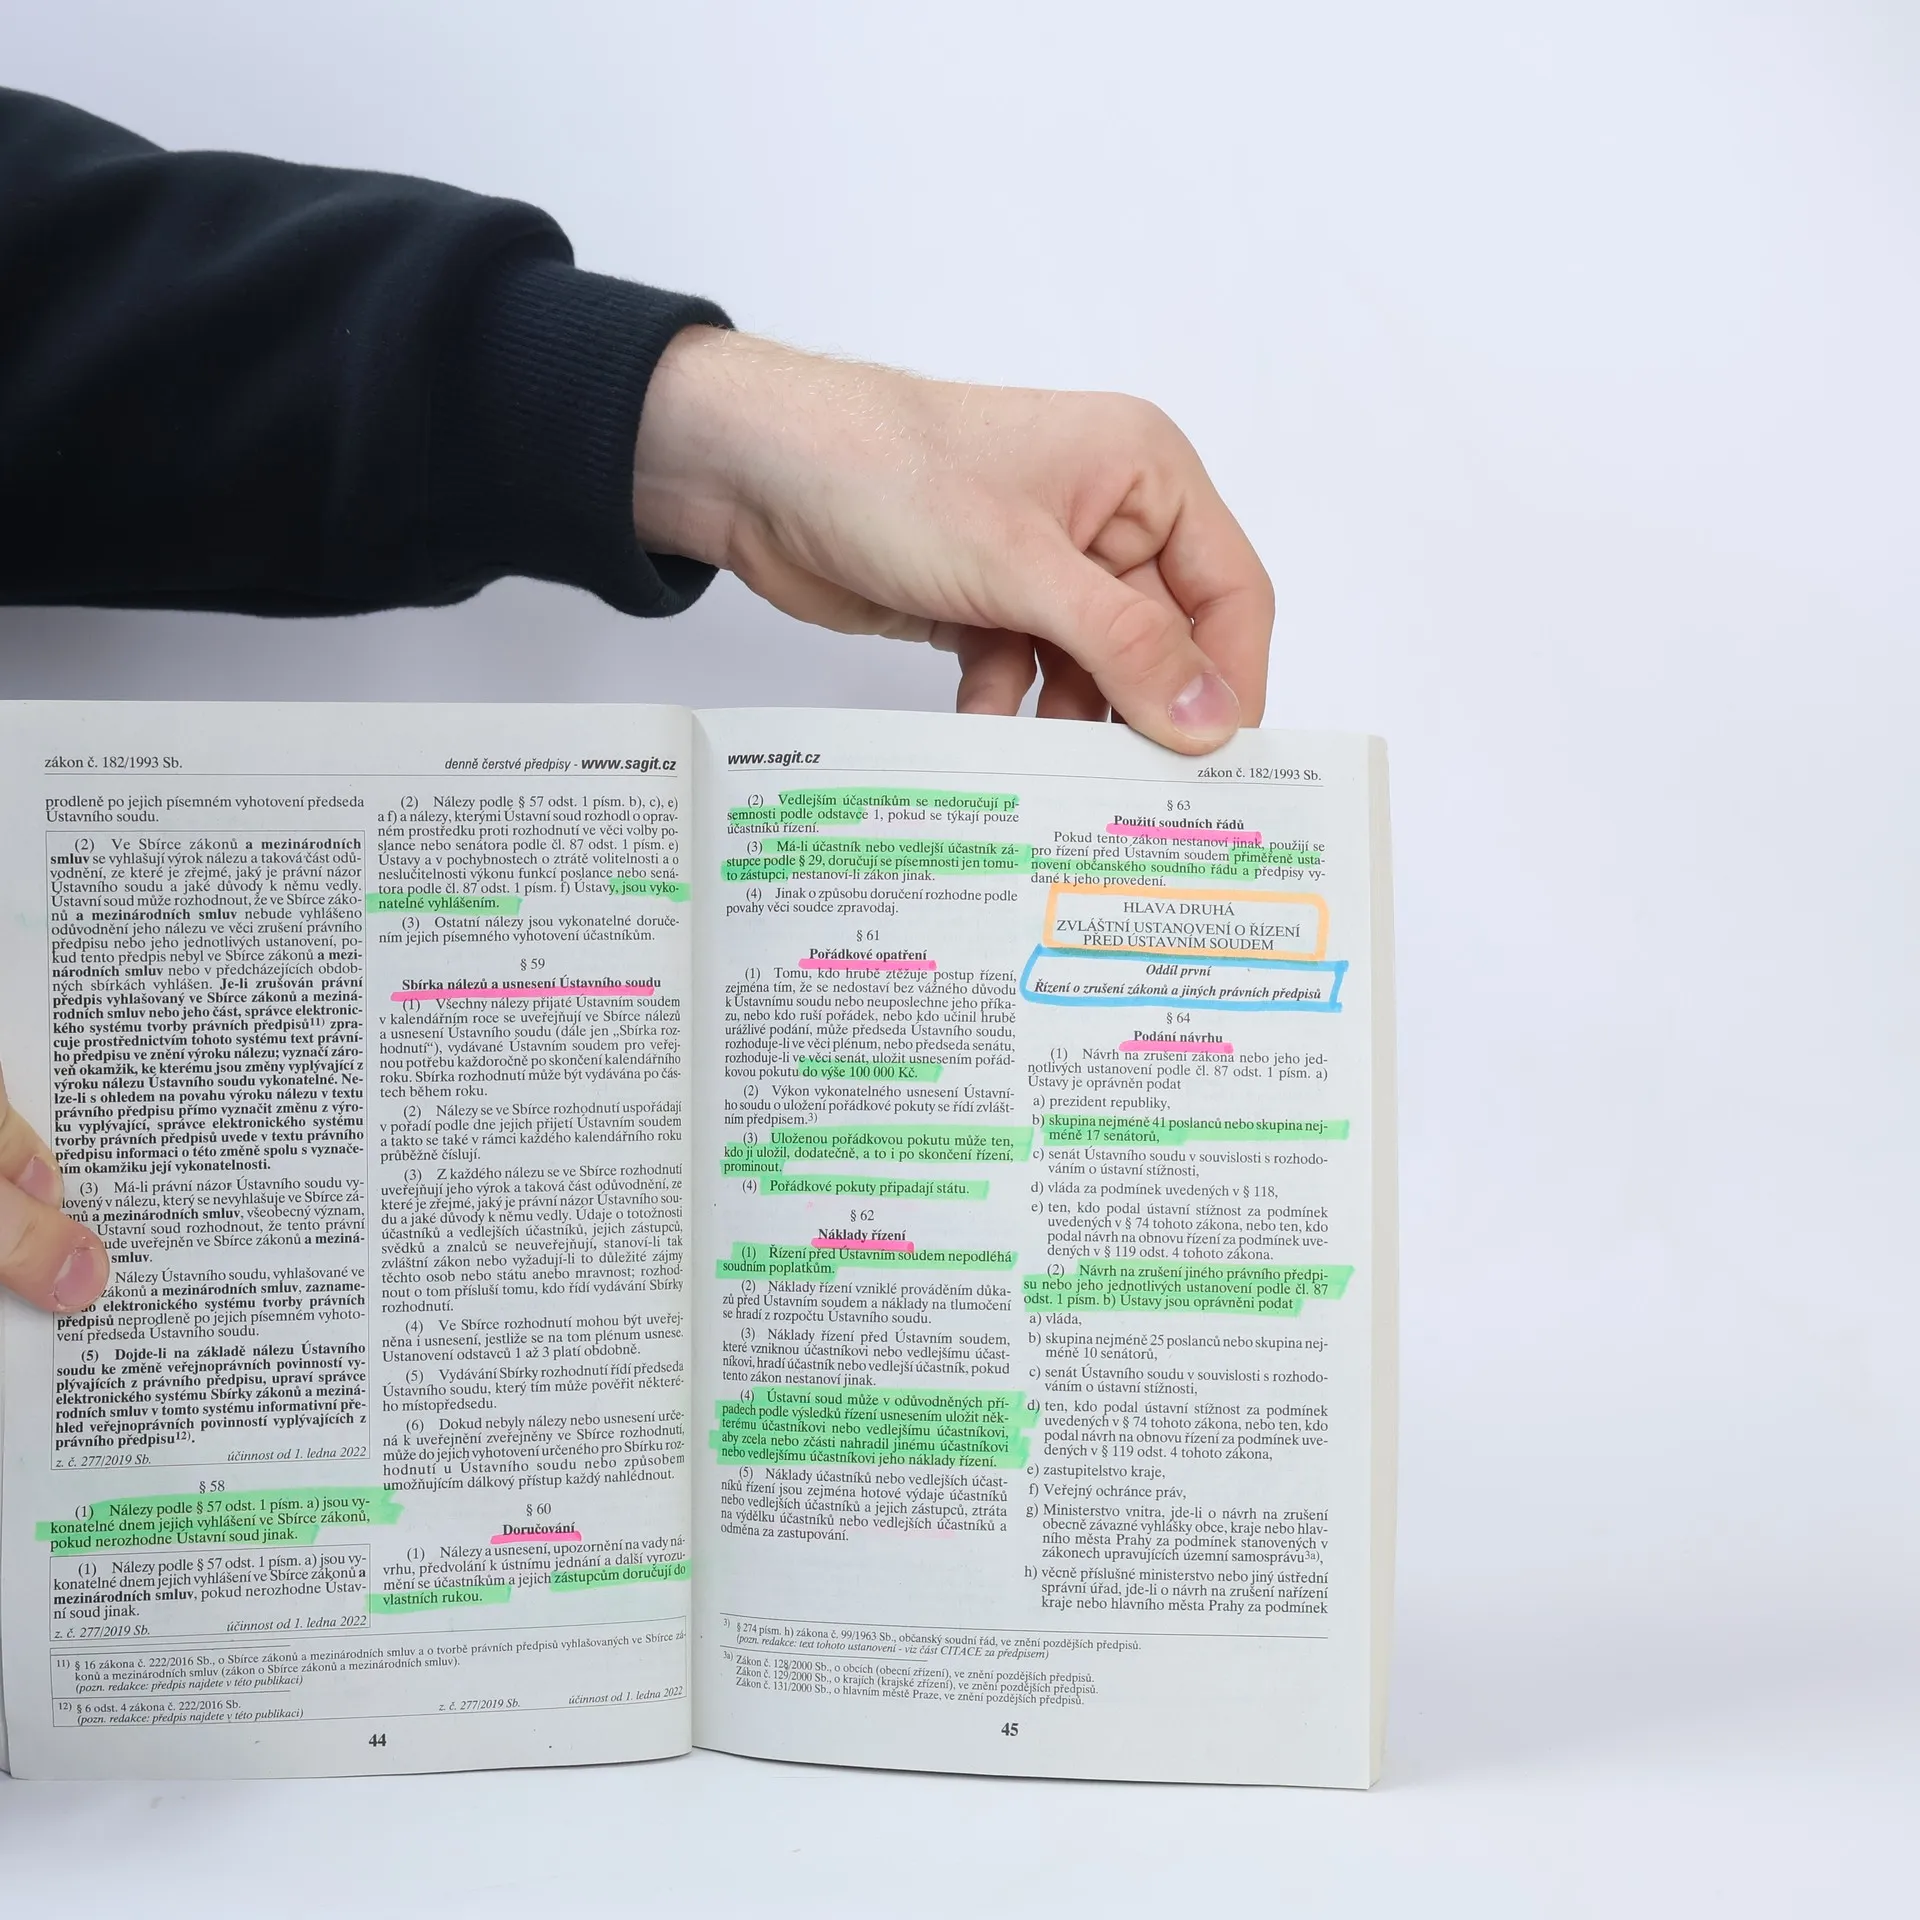 zákon č. 182/1993 Sb.
denně čerstvé předpisy - www.sagit.cz
prodleně po jejich písemném vyhotovení předseda
Ústavního soudu.
(2) Ve Sbírce zákonů a mezinárodních
smluv se vyhlašují výrok nálezu a taková část odů-
vodnění, ze které je zřejmé, jaký je právní názor
Ústavního soudu a jaké důvody k němu vedly.
Ústavní soud může rozhodnout, že ve Sbírce záko-
nů a mezinárodních smluv nebude vyhlášeno
odůvodnění jeho nálezu ve věci zrušení právního
předpisu nebo jeho jednotlivých ustanovení, po-
kud tento předpis nebyl ve Sbírce zákonů a mezi-
národních smluv nebo v předcházejících obdob-
ných sbírkách vyhlášen. Je-li zrušován právní
předpis vyhlašovaný ve Sbírce zákonů a meziná-
rodních smluv nebo jeho část, správce elektronic-
kého systému tvorby právních předpisů11) zpra-
cuje prostřednictvím tohoto systému text právní-
ho předpisu ve znění výroku nálezu; vyznačí záro-
veň okamžik, ke kterému jsou změny vyplývající z
výroku nálezu Ústavního soudu vykonatelné. Ne-
lze-li s ohledem na povahu výroku nálezu v textu
právního předpisu přímo vyznačit změnu z výro-
ku vyplývající, správce elektronického systému
tvorby právních předpisů uvede v textu právního
předpisu informaci o této změně spolu s vyznače-
ním okamžiku její vykonatelnosti.
(3) Má-li právní názor Ústavního soudu vy-
lovený v nálezu, který se nevyhlašuje ve Sbírce zá-
onů a mezinárodních smluv, všeobecný význam,
Ústavní soud rozhodnout, že tento právní
ude uveřejněn ve Sbírce zákonů a meziná-
smluv.
Nálezy Ústavního soudu, vyhlašované ve
zákonů a mezinárodních smluv, zazname-
do elektronického systému tvorby právních
předpisů neprodleně po jejich písemném vyhoto-
vení předseda Ústavního soudu.
(5) Dojde-li na základě nálezu Ústavního
soudu ke změně veřejnoprávních povinností vy-
plývajících z právního předpisu, upraví správce
elektronického systému Sbírky zákonů a meziná-
rodních smluv v tomto systému informativní pře-
hled veřejnoprávních povinností vyplývajících z
právního předpisu12).
z. č. 277/2019 Sb. účinnost od 1. ledna 2022
§ 58
(1) Nálezy podle § 57 odst. 1 písm. a) jsou vy-
konatelné dnem jejich vyhlášení ve Sbírce zákonů,
pokud nerozhodne Ústavní soud jinak.
(1) Nálezy podle § 57 odst. 1 písm. a) jsou vy-
konatelné dnem jejich vyhlášení ve Sbírce zákonů a
mezinárodních smluv, pokud nerozhodne Ústav-
ní soud jinak.
z. č. 277/2019 Sb. účinnost od 1. ledna 2022
(2) Nálezy podle § 57 odst. 1 písm. b), c), e)
a f) a nálezy, kterými Ústavní soud rozhodl o oprav-
ném prostředku proti rozhodnutí ve věci volby po-
slance nebo senátora podle čl. 87 odst. 1 písm. e)
Ústavy a v pochybnostech o ztrátě volitelnosti a o
neslučitelnosti výkonu funkcí poslance nebo sená-
tora podle čl. 87 odst. 1 písm. f) Ústavy, jsou vyko-
natelné vyhlášením.
(3) Ostatní nálezy jsou vykonatelné doruče-
ním jejich písemného vyhotovení účastníkům.
§ 59
Sbírka nálezů a usnesení Ústavního soudu
(1) Všechny nálezy přijaté Ústavním soudem
v kalendářním roce se uveřejňují ve Sbírce nálezů
a usnesení Ústavního soudu (dále jen „Sbírka roz-
hodnutí“), vydávané Ústavním soudem pro veřej-
nou potřebu každoročně po skončení kalendářního
roku. Sbírka rozhodnutí může být vydávána po čás-
tech během roku.
(2) Nálezy se ve Sbírce rozhodnutí uspořádají
v pořadí podle dne jejich přijetí Ústavním soudem
a takto se také v rámci každého kalendářního roku
průběžně číslují.
(3) Z každého nálezu se ve Sbírce rozhodnutí
uveřejňují jeho výrok a taková část odůvodnění, ze
které je zřejmé, jaký je právní názor Ústavního sou-
du a jaké důvody k němu vedly. Údaje o totožnosti
účastníků a vedlejších účastníků, jejich zástupců,
svědků a znalců se neuveřejňují, stanoví-li tak
zvláštní zákon nebo vyžadují-li to důležité zájmy
těchto osob nebo státu anebo mravnost; rozhod-
nout o tom přísluší tomu, kdo řídí vydávání Sbírky
rozhodnutí.
(4) Ve Sbírce rozhodnutí mohou být uveřej-
něna i usnesení, jestliže se na tom plénum usnese.
Ustanovení odstavců 1 až 3 platí obdobně.
(5) Vydávání Sbírky rozhodnutí řídí předseda
Ústavního soudu, který tím může pověřit některé-
ho místopředsedu.
(6) Dokud nebyly nálezy nebo usnesení urče-
ná k uveřejnění zveřejněny ve Sbírce rozhodnutí,
může do jejich vyhotovení určeného pro Sbírku roz-
hodnutí u Ústavního soudu nebo způsobem
umožňujícím dálkový přístup každý nahlédnout.
§ 60
Doručování
(1) Nálezy a usnesení, upozornění na vady ná-
vrhu, předvolání k ústnímu jednání a další vyrozu-
mění se účastníkům a jejich zástupcům doručují do
vlastních rukou.
11) § 16 zákona č. 222/2016 Sb., o Sbírce zákonů a mezinárodních smluv a o tvorbě právních předpisů vyhlašovaných ve Sbírce zá-
konů a mezinárodních smluv (zákon o Sbírce zákonů a mezinárodních smluv).
(pozn. redakce: předpis najdete v této publikaci)
12) § 6 odst. 4 zákona č. 222/2016 Sb.
(pozn. redakce: předpis najdete v této publikaci)
z. č. 277/2019 Sb. účinnost od 1. ledna 2022
44
www.sagit.cz
zákon č. 182/1993 Sb.
(2) Vedlejším účastníkům se nedoručují pí-
semnosti podle odstavce 1, pokud se týkají pouze
účastníků řízení.
(3) Má-li účastník nebo vedlejší účastník zá-
stupce podle § 29, doručují se písemnosti jen tomu-
to zástupci, nestanoví-li zákon jinak.
(4) Jinak o způsobu doručení rozhodne podle
povahy věci soudce zpravodaj.
§ 61
Pořádkové opatření
(1) Tomu, kdo hrubě ztěžuje postup řízení,
zejména tím, že se nedostaví bez vážného důvodu
k Ústavnímu soudu nebo neuposlechne jeho příka-
zu, nebo kdo ruší pořádek, nebo kdo učinil hrubě
urážlivé podání, může předseda Ústavního soudu,
rozhoduje-li ve věci plénum, nebo předseda senátu,
rozhoduje-li ve věci senát, uložit usnesením pořád-
kovou pokutu do výše 100 000 Kč.
(2) Výkon vykonatelného usnesení Ústavní-
ho soudu o uložení pořádkové pokuty se řídí zvlášt-
ním předpisem.3)
(3) Uloženou pořádkovou pokutu může ten,
kdo ji uložil, dodatečně, a to i po skončení řízení,
prominout.
(4) Pořádkové pokuty připadají státu.
§ 62
Náklady řízení
(1) Řízení před Ústavním soudem nepodléhá
soudním poplatkům.
(2) Náklady řízení vzniklé prováděním důka-
zů před Ústavním soudem a náklady na tlumočení
se hradí z rozpočtu Ústavního soudu.
(3) Náklady řízení před Ústavním soudem,
které vzniknou účastníkovi nebo vedlejšímu účast-
níkovi, hradí účastník nebo vedlejší účastník, pokud
tento zákon nestanoví jinak.
(4) Ústavní soud může v odůvodněných pří-
padech podle výsledků řízení usnesením uložit něk-
terému účastníkovi nebo vedlejšímu účastníkovi,
aby zcela nebo zčásti nahradil jinému účastníkovi
nebo vedlejšímu účastníkovi jeho náklady řízení.
(5) Náklady účastníků nebo vedlejších účast-
níků řízení jsou zejména hotové výdaje účastníků
nebo vedlejších účastníků a jejich zástupců, ztráta
na výdělku účastníků nebo vedlejších účastníků a
odměna za zastupování.
§ 63
Použití soudních řádů
Pokud tento zákon nestanoví jinak, použijí se
pro řízení před Ústavním soudem přiměřeně usta-
novení občanského soudního řádu a předpisy vy-
dané k jeho provedení.
HLAVA DRUHÁ
ZVLÁŠTNÍ USTANOVENÍ O ŘÍZENÍ
PŘED ÚSTAVNÍM SOUDEM
Oddíl první
Řízení o zrušení zákonů a jiných právních předpisů
§ 64
Podání návrhu
(1) Návrh na zrušení zákona nebo jeho jed-
notlivých ustanovení podle čl. 87 odst. 1 písm. a)
Ústavy je oprávněn podat
a) prezident republiky,
b) skupina nejméně 41 poslanců nebo skupina nej-
méně 17 senátorů,
c) senát Ústavního soudu v souvislosti s rozhodo-
váním o ústavní stížnosti,
d) vláda za podmínek uvedených v § 118,
e) ten, kdo podal ústavní stížnost za podmínek
uvedených v § 74 tohoto zákona, nebo ten, kdo
podal návrh na obnovu řízení za podmínek uve-
dených v § 119 odst. 4 tohoto zákona.
(2) Návrh na zrušení jiného právního předpi-
su nebo jeho jednotlivých ustanovení podle čl. 87
odst. 1 písm. b) Ústavy jsou oprávněni podat
a) vláda,
b) skupina nejméně 25 poslanců nebo skupina nej-
méně 10 senátorů,
c) senát Ústavního soudu v souvislosti s rozhodo-
váním o ústavní stížnosti,
d) ten, kdo podal ústavní stížnost za podmínek
uvedených v § 74 tohoto zákona, nebo ten, kdo
podal návrh na obnovu řízení za podmínek uve-
dených v § 119 odst. 4 tohoto zákona,
e) zastupitelstvo kraje,
f) Veřejný ochránce práv,
g) Ministerstvo vnitra, jde-li o návrh na zrušení
obecně závazné vyhlášky obce, kraje nebo hlav-
ního města Prahy za podmínek stanovených v
zákonech upravujících územní samosprávu3a),
h) věcně příslušné ministerstvo nebo jiný ústřední
správní úřad, jde-li o návrh na zrušení nařízení
kraje nebo hlavního města Prahy za podmínek
3) § 274 písm. h) zákona č. 99/1963 Sb., občanský soudní řád, ve znění pozdějších předpisů.
(pozn. redakce: text tohoto ustanovení - viz část CITACE za předpisem)
3a) Zákon č. 128/2000 Sb., o obcích (obecní zřízení), ve znění pozdějších předpisů.
Zákon č. 129/2000 Sb., o krajích (krajské zřízení), ve znění pozdějších předpisů.
Zákon č. 131/2000 Sb., o hlavním městě Praze, ve znění pozdějších předpisů.
45